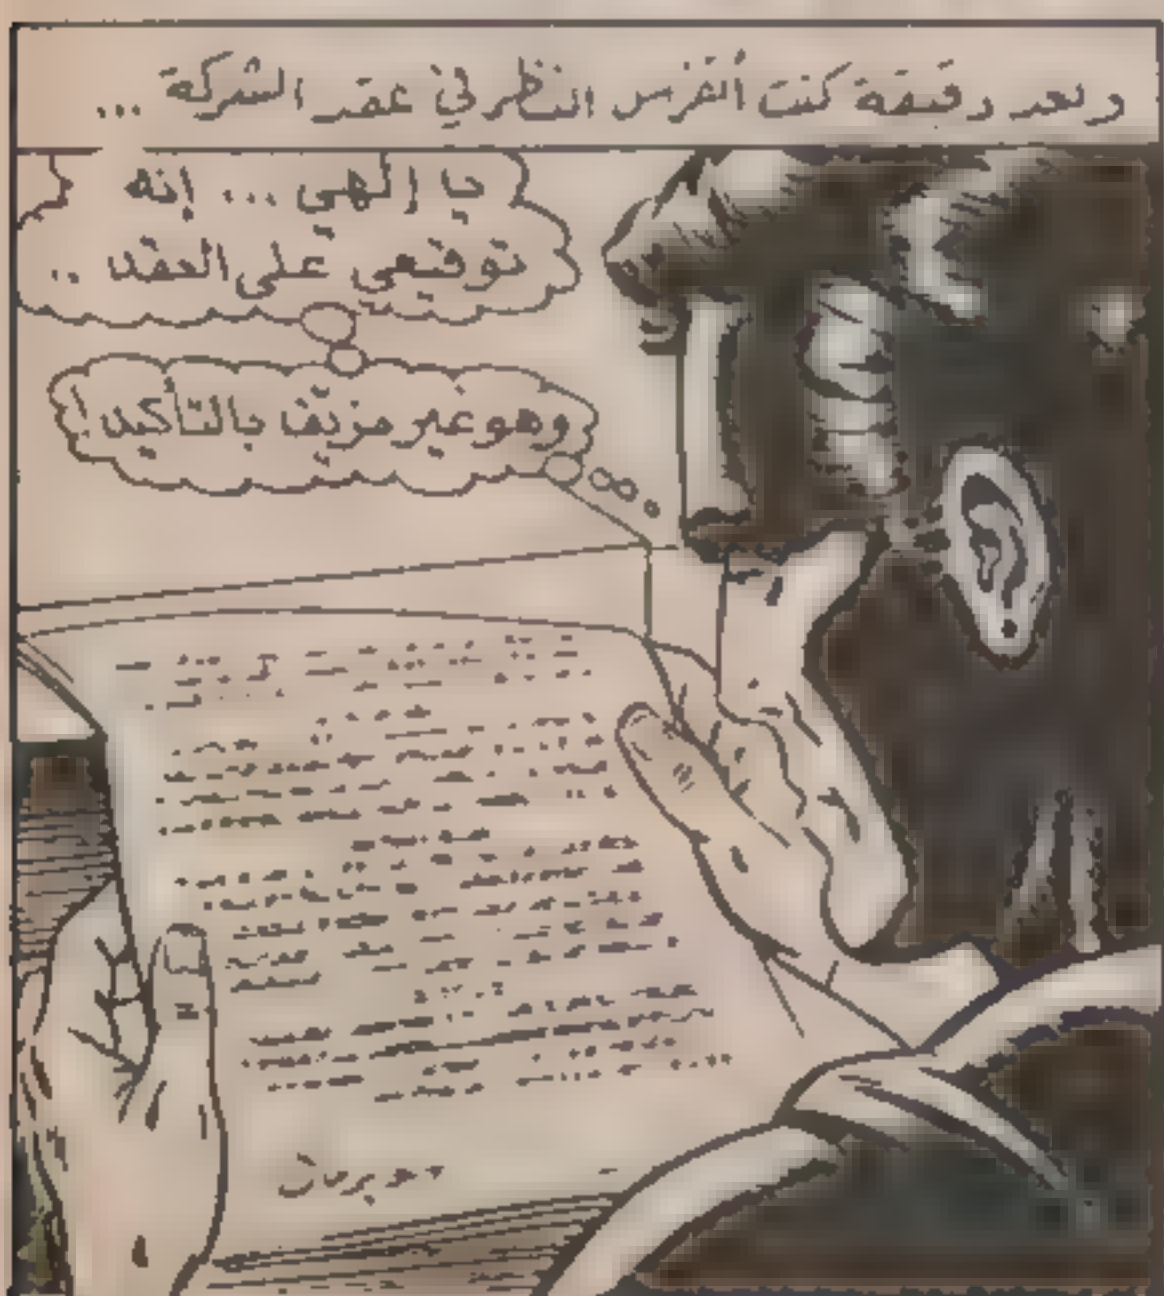 وبعد دقيقة كنت أتفرس النظر في عقد الشركة ...
يا إلهي ... إنه
توقيعي على العقد ..
وهو غير مزيّف بالتأكيد!